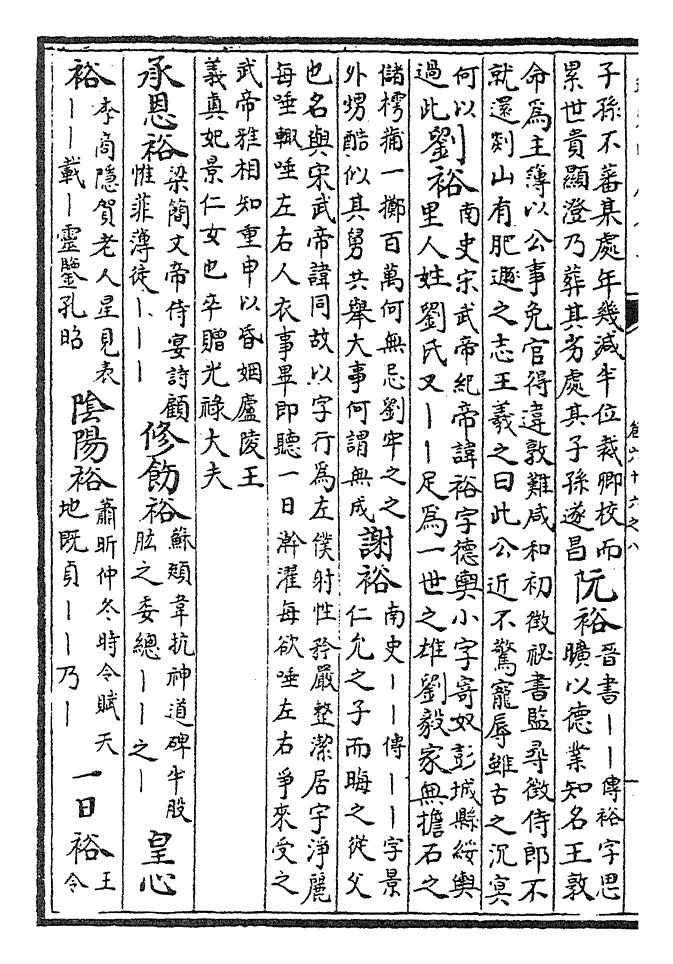 卷六十六之八
子孫不蕃某處年幾減半位裁卿校而
累世貴顯澄乃葬其劣處其子孫遂昌
阮裕
晉書丨丨傳裕字思
曠以德業知名王敦
命爲主簿以公事免官得違敦難咸和初徵祕書監尋徵侍郎不
就還剡山有肥遯之志王羲之曰此公近不驚寵辱雖古之沉冥
何以
過此
劉裕
南史宋武帝紀帝諱裕字德輿小字寄奴彭城縣綏輿
里人姓劉氏又丨丨足爲一世之雄劉毅家無擔石之
儲樗蒱一擲百萬何無忌劉牢之之
外甥酷似其舅共舉大事何謂無成
謝裕
南史丨丨傳丨丨字景
仁允之子而晦之從父
也名與宋武帝諱同故以字行爲左僕射性矜嚴整潔居宇淨麗
每唾輒唾左右人衣事畢即聽一日澣濯每欲唾左右爭來受之
武帝雅相知重申以昏姻廬陵王
義真妃景仁女也卒贈光祿大夫
承恩裕
梁簡文帝侍宴詩顧
惟菲薄徒丨丨丨
修飭裕
蘇頲韋抗神道碑半股
肱之委總丨丨之丨
皇心
裕
李商隱賀老人星見表
丨丨載丨靈鑒孔昭
陰陽裕
蕭昕仲冬時令賦天
地既貞丨丨乃丨
一日裕
王
令